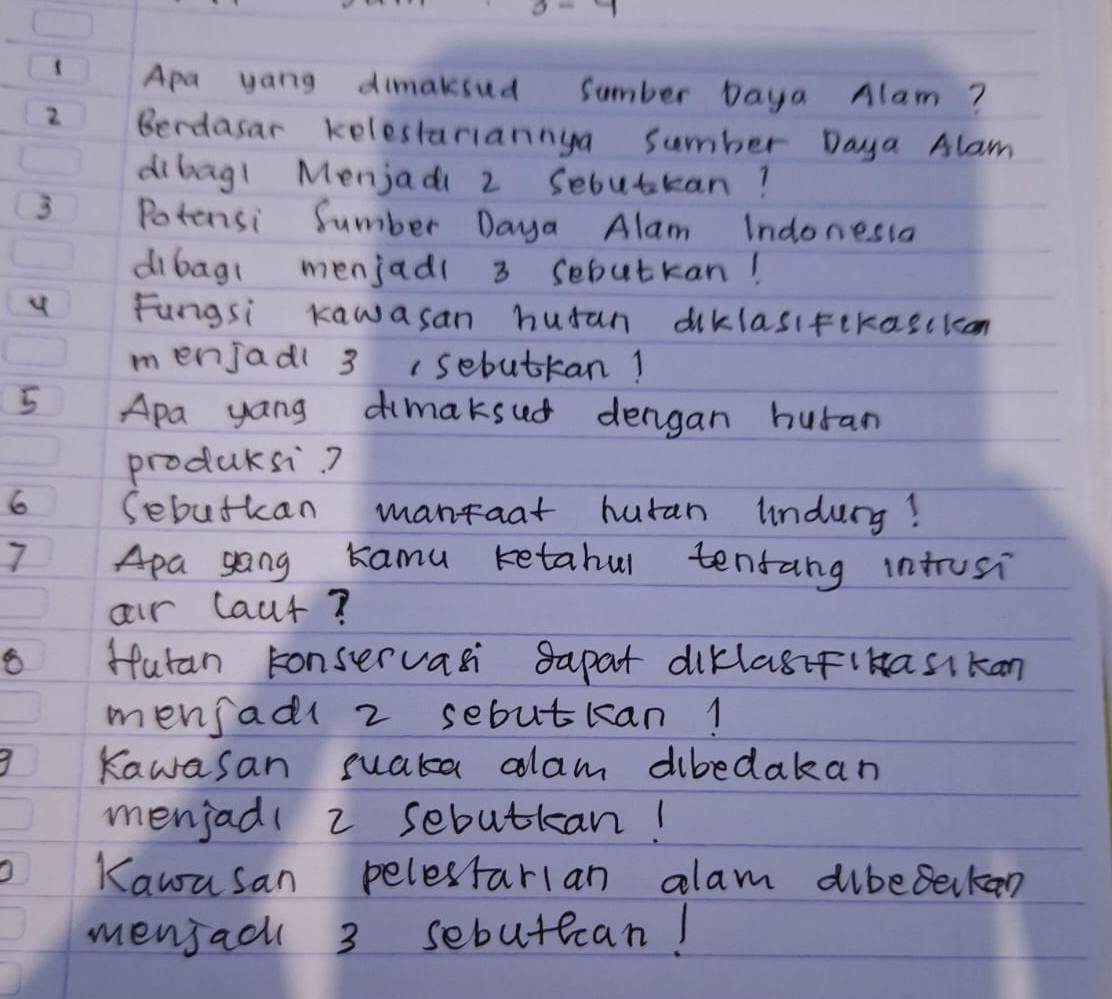 1 Apa yang dimaksud Sumber Daya Alam ?
2 Berdasar kelestariannya Sumber Daya Alam
dibagi Menjadi 2 Sebutkan !
3 Potensi Sumber Daya Alam Indonesia
dibagi menjadi 3 Sebutkan !
4 Fungsi kawasan hutan diklasifikasikan
menjadi 3 , sebutkan !
5 Apa yang dimaksud dengan hutan
produksi ?
6 Sebutkan manfaat hutan lindung !
7 Apa yang kamu ketahui tentang intrusi
air laut ?
8 Hutan konservasi dapat diklasifikasikan
menjadi 2 sebutkan !
9 Kawasan suaka alam dibedakan
menjadi 2 sebutkan !
0 Kawasan pelestarian alam dibedakan
menjadi 3 sebutkan !